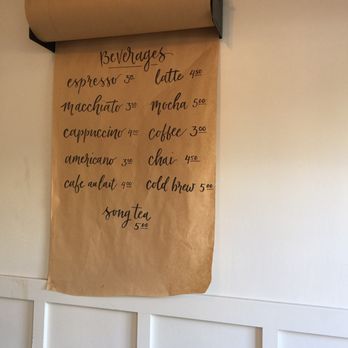 Beverages
espresso 3.00 latte 4.50
macchiato 3.50 mocha 5.00
cappuccino 4.00 coffee 3.00
americano 3.00 chai 4.50
cafe au lait 4.00 cold brew 5.00
song tea
5.00